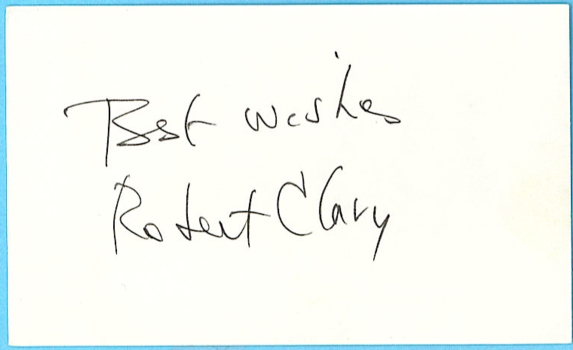 Best wishes
Robert Clary